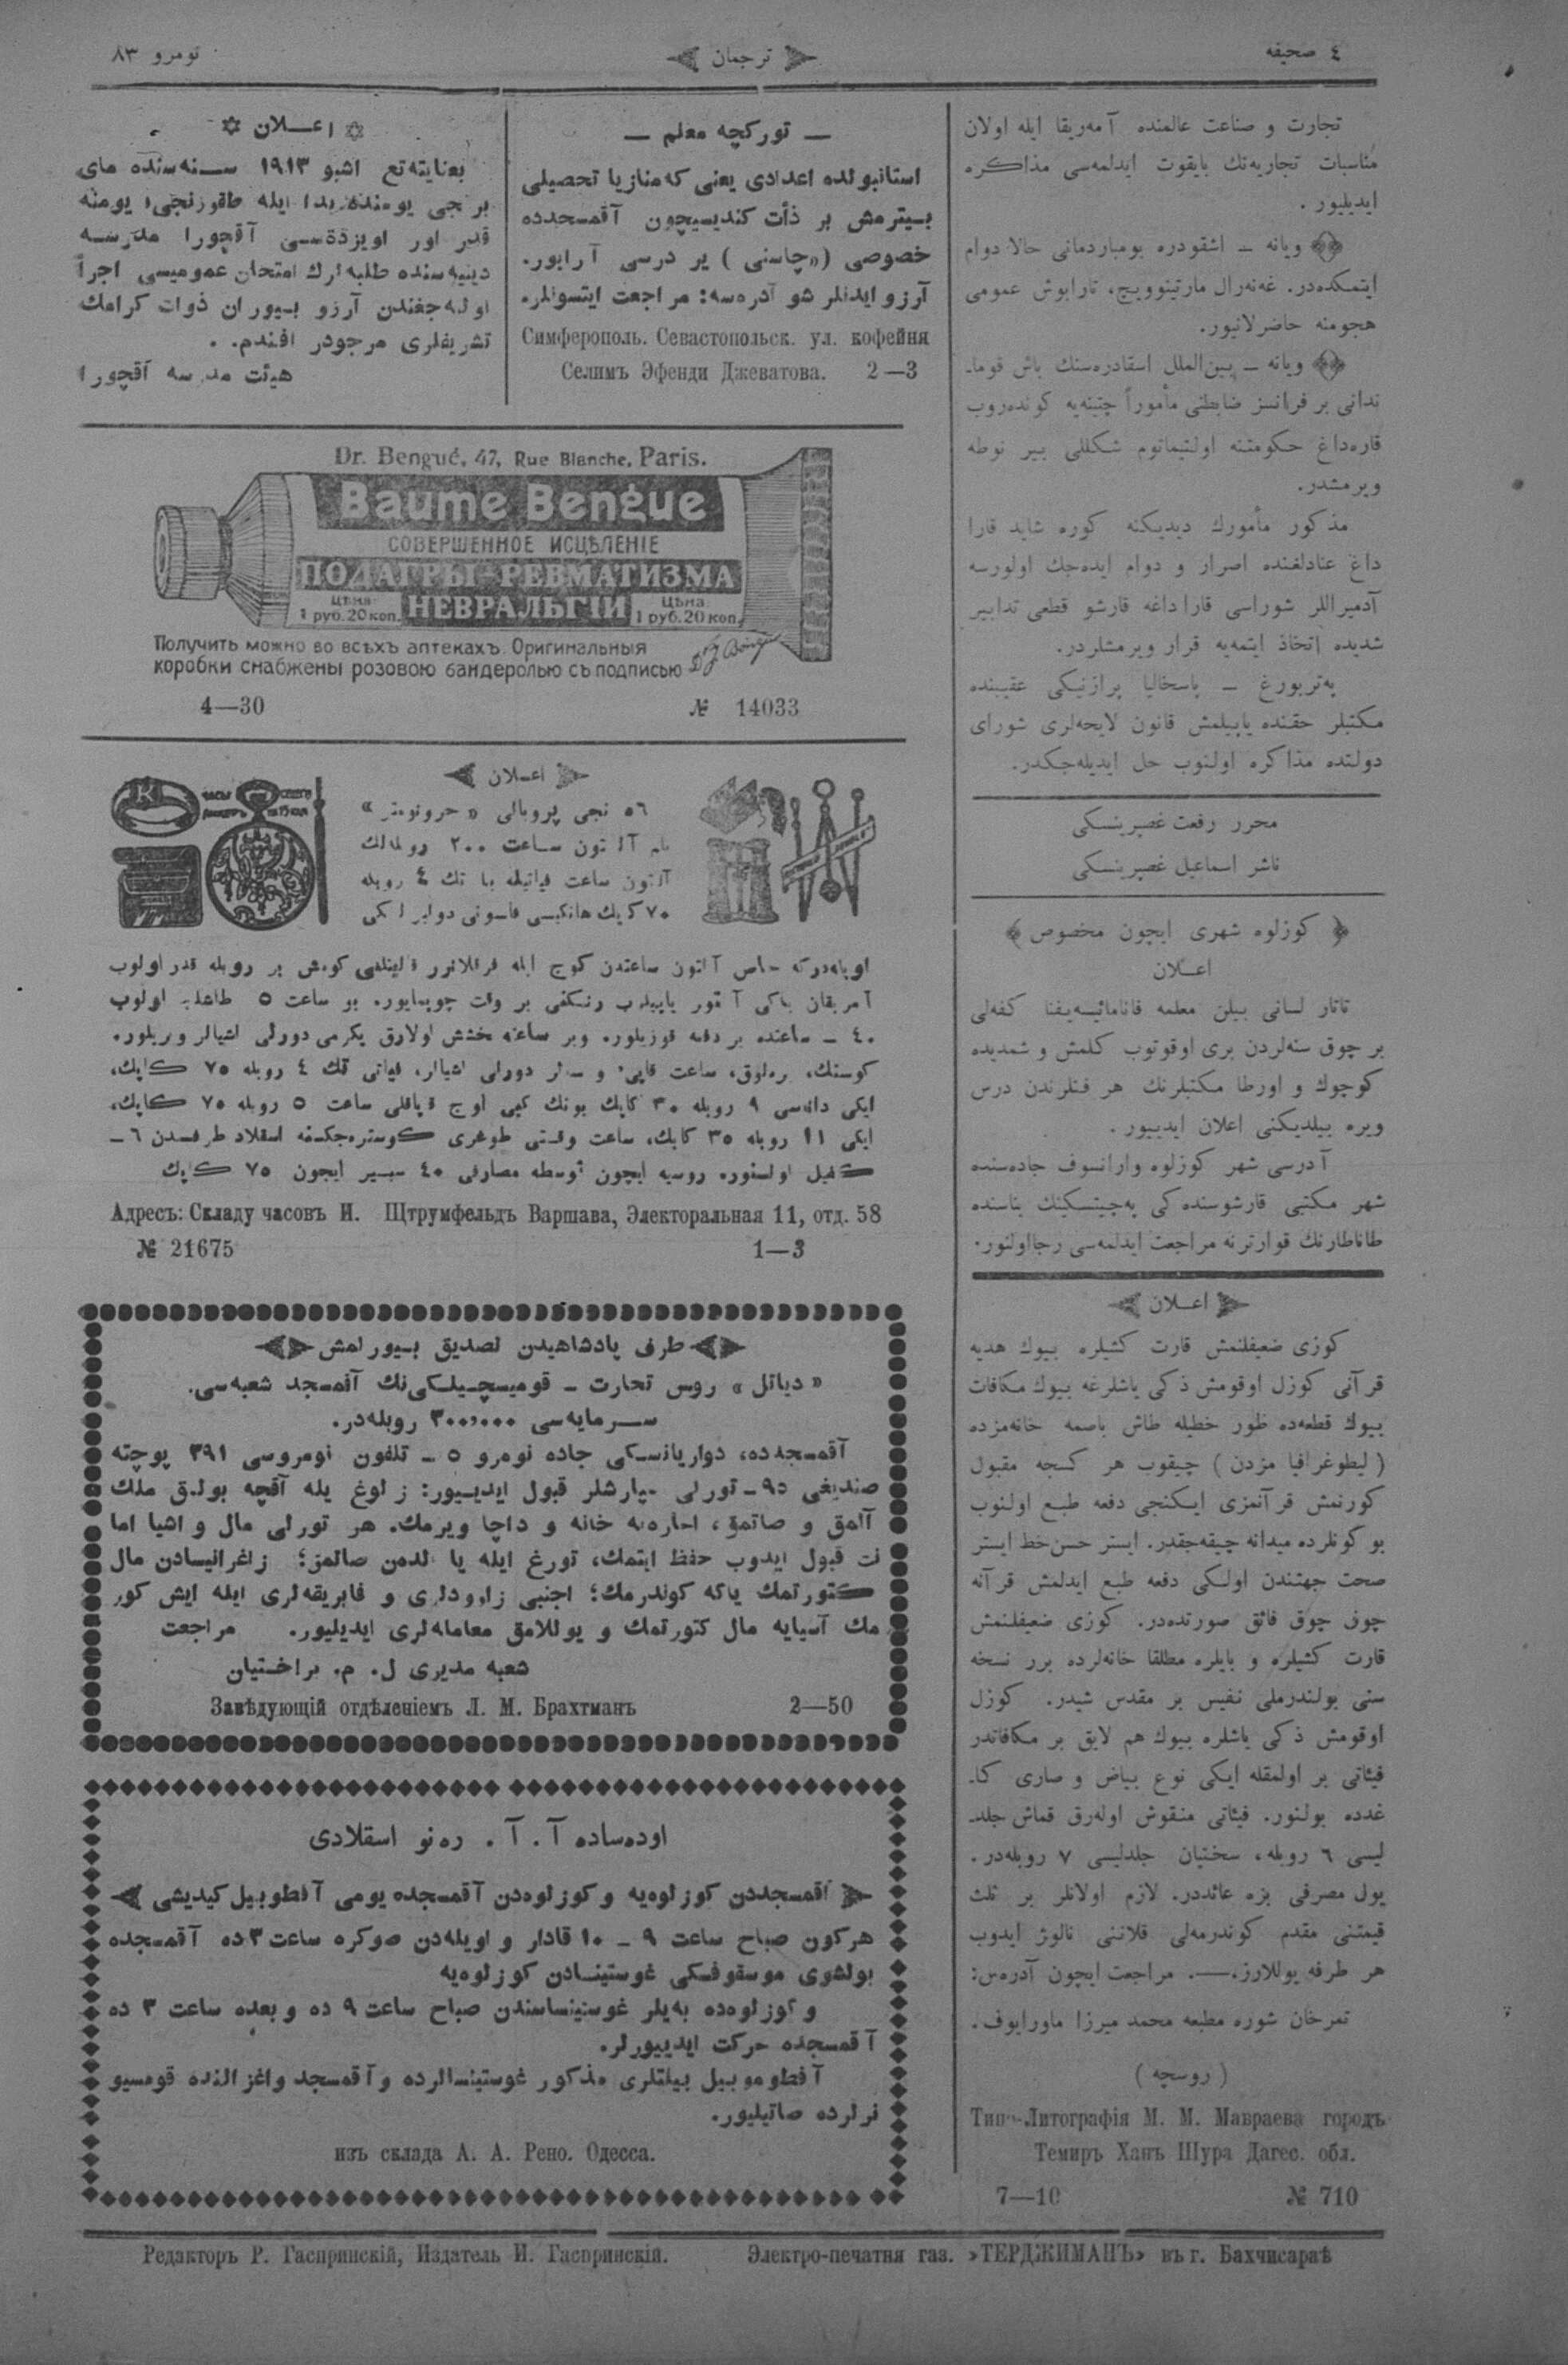 ٤ صحيفه
ترجمان
نومرو ٨٣
تجارت و صناعت عالمنده آمەريقا ايله اولان
مناسبات تجاريەنك بايقوت ايدلمەسى مذاكره
ايديليور .
ويانه ـ اشقودره بومباردمانى حالا دوام
ايتمكدەدر. غەنەرال مارتينوويچ، تارابوش عمومى
هجومنه حاضرلانيور.
ويانه ـ بين‌الملل اسقادرەسنك باش قوما-
ندانى بر فرانسز ضابطنى مأموراً چتينەيه كوندەروب
قارەداغ حكومتنه اولتيماتوم شكللى بير نوطه
ويرمشدر.
مذكور مأمورك ديديكنه كوره شايد قارا
داغ عنادلغنده اصرار و دوام ايدەجك اولورسه
آدميراللر شوراسى قاراداغه قارشو قطعى تدابير
شديده اتخاذ ايتمەيه قرار ويرمشلردر.
پەتربورغ ـ پاسخاليا پرازنيكى عقيبنده
مكتبلر حقنده ياپيلمش قانون لايحەلرى شوراى
دولتده مذاكره اولنوب حل ايديلەجكدر.
محرر رفعت غصپرينسكى
ناشر اسماعيل غصپرينسكى
كوزلوه شهرى ايچون مخصوص
اعلان
تاتار لسانى بيلن معلمه كفەلى
بر چوق سنەلردن برى اوقوتوب كلمش و شمديده
كوچوك و اورطا مكتبلرنك هر فنلرندن درس
ويره بيلديكنى اعلان ايدييور .
آدرسى شهر كوزلوه وارانسوف جادەسنده
شهر مكتبى قارشوسندەكى بناسنده
قوارترنه مراجعت ايدلمەسى رجااولنور.
اعلان
كوزى ضعيفلنمش قارت كشيلره بيوك هديه
قرآنى كوزل اوقومش ذكى ياشلرغه بيوك مكافات
بيوك قطعەده ظور خطيله طاش باصمه خانەمزده
( ليطوغرافيا مزدن ) چيقوب هر كسجه مقبول
كورنمش قرآنمزى ايكنجى دفعه طبع اولنوب
بو كونلرده ميدانه چيقەجقدر. ايستر حسن‌خط ايستر
صحت جهتندن اولكى دفعه طبع ايدلمش قرآنه
چوق چوق فائق صورتدەدر. كوزى ضعيفلنمش
قارت كشيلره و بايلره مطلقا خانەلرده برر نسخه
سنى بولندرملى نفيس بر مقدس شيدر. كوزل
اوقومش ذكى ياشلره بيوك هم لايق بر مكافاتدر
فيئاتى بر اولمقله ايكى نوع بياض و صارى كا-
غدده بولنور. فيئاتى منقوش اولەرق قماش جلد-
ليسى ٦ روبله، سختيان جلدليسى ٧ روبلەدر.
يول مصرفى بزه عائددر. لازم اولانلر بر ثلث
قيمتنى مقدم كوندرمەلى قلاننى نالوژ ايدوب
هر طرفه يوللارز.—. مراجعت ايچون آدرەس:
تمرخان شوره مطبعه محمد ميرزا ماورايوف.
( روسچه )
Типо-Литографія М. М. Мавраева городъ
Темиръ Ханъ Шура Дагес. обл.
7—10 № 710
— توركچه معلم —
استانبولده اعدادى يعنى كەمنازيا تحصيلى
بيترمش بر ذأت كنديسيچون آقمسجدده
خصوصى (چاسنى ) ير درسى آرايور.
آرزو ايدنلر شو آدرەسه: مراجعت ايتسونلر.
Симферополь. Севастопольск. ул. кофейня
Селимъ Эфенди Джеватова. 2—3
اعلان
بعنايتەتع اشبو ١٩١٣ سنەسنده ماى
برنجى يومنده بدا ايله طقوزنجى يومنه
قدر اور آقچورا مدرسه
دينيەسنده طلبەلرك امتحان عموميسى اجرا
اولەجغندن آرزو بيوران ذوات كرامك
تشريفلرى مرجودر افندم.
هيئت مدرسه آقچورا
Dr. Bengué, 47, Rue Blanche, Paris.
Baume Bengue
СОВЕРШЕННОЕ ИСЦѢЛЕНІЕ
ПОДАГРЫ-РЕВМАТИЗМА
НЕВРАЛЬГІЙ
Цѣна 1 руб. 20 коп.
Цѣна 1 руб. 20 коп.
Получить можно во всѣхъ аптекахъ. Оригинальныя
коробки снабжены розовою бандеролью съ подписью
4—30 № 14033
اعلان
٥٦ نجى پروبالى « حرونومتر »
آلتون ساعت ٢٠٠ روبلەلك
آلتون ساعت فياتيله يا تك ٤ روبله
٧٠ كپيك
آلتون ساعتدن كوج ايله كومش بر روبله قدر اولوب
بر وقت بو ساعت ٥ اولوب
٤٠ ـ ساعتده بر دفعه قوريلور. وبر ساعته بخشش اولارق يكرمى دورلى اشيالر ويريلور.
كوستك، ساعت قابى و سائر دورلى اشيالر، فياتى تك ٤ روبله ٧٥ كاپك،
ايكى دانەسى ٩ روبله ٣٠ كاپك بونك كبى اوچ قپاقلى ساعت ٥ روبله ٧٥ كاپك،
ايكى ١١ روبله ٣٥ كاپك، ساعت وقتى طوغرى كوسترەجكنه اسقلاد طرفندن ٦ ـ
كفيل اولنور. روسيه ايچون پوسطه مصارفى ٤٠ سيبير ايچون ٧٥ كاپك
Адресъ: Складу часовъ И. Щтрумфельдъ Варшава, Электоральная 11, отд. 58
№ 21675 1—3
طرف پادشاهيدن تصديق بيورلمش
« دياتل » روس تجارت ـ قوميسچيلكى‌نك آقمسجد شعبەسى.
سرمايەسى ٣٠٠٠٠٠ روبلەدر.
آقمسجدده، دواريانسكى جاده نومرو ٥ ـ تلفون نومروسى ٣٩١ پوچته
صنديغى ٩٥ ـ تورلى سپارشلر قبول ايدييور: زلوغ يله آقچه بولق ملك
آلمق و صاتمق، اجارەيه خانه و داچا ويرمك. هر تورلى مال و اشيا اما
نت قبول ايدوب حفظ ايتمك، تورغ ايله يا صاتمق؛ زاغرانيسادن مال
كتورتمك ياكه كوندرمك؛ اجنبى زاوودلرى و فابريقەلرى ايله ايش كور
مك آسيايه مال كتورتمك و يوللامق معاملەلرى ايديليور. مراجعت
شعبه مديرى ل. م. براختيان
Завѣдующій отдѣленіемъ Л. М. Брахтманъ 2—50
اودەساده آ. آ. رەنو اسقلادى
آقمسجددن كوزلوەيه و كوزلوەدن آقمسجده يومى آفطوبيل كيديشى
هركون صباح ساعت ٩ ـ ١٠ قادار و اويلەدن صوكره ساعت ٣ ده آقمسجده
بولشوى موسقوفسكى غوستينسادن كوزلوەيه
و كوزلوەده بەيلر غوستينساسندن صباح ساعت ٩ ده و بعده ساعت ٣ ده
آقمسجده حركت ايدييورلر.
آفطوموبيل بيلتلرى مذكور غوستينسالرده و آقمسجد واغزالنده قومسيو
نرلرده صاتيليور.
изъ склада А. А. Рено. Одесса.
Редакторъ Р. Гаспринскій, Издатель И. Гаспринскій. Электро-печатня газ. «ТЕРДЖИМАНЪ» въ г. Бахчисараѣ